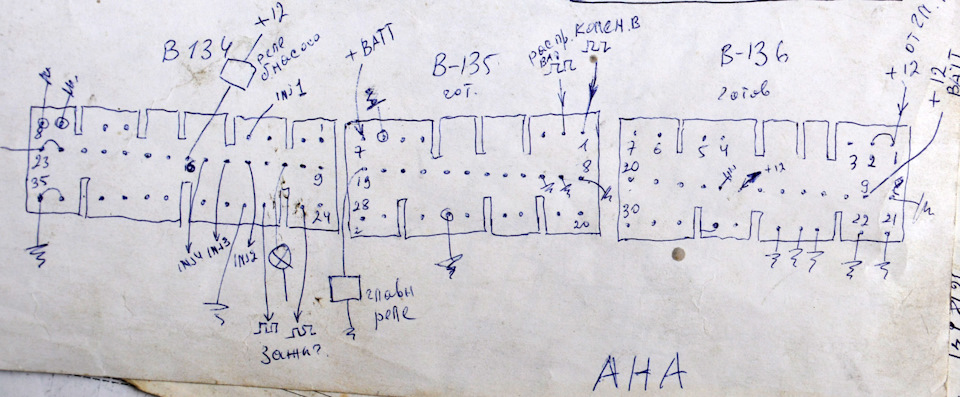 В 134
+12
реле
б насоса
INJ 1
8
23
35
1
9
24
INJ4
INJ3
INJ2
Зажиг.
+ BATT
В-135
гот.
распр.
вал
колен.в
7
19
28
1
8
20
главн
реле
В-136
готов
+12 от гл. р.
+12
BATT
7
6
5
4
3
2
1
20
9
30
22
21
+12
АНА